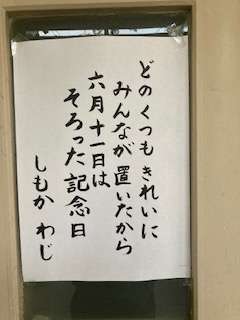 どのくつもきれいに
みんなが置いたから
六月十一日は
そろった記念日
しもか わじ